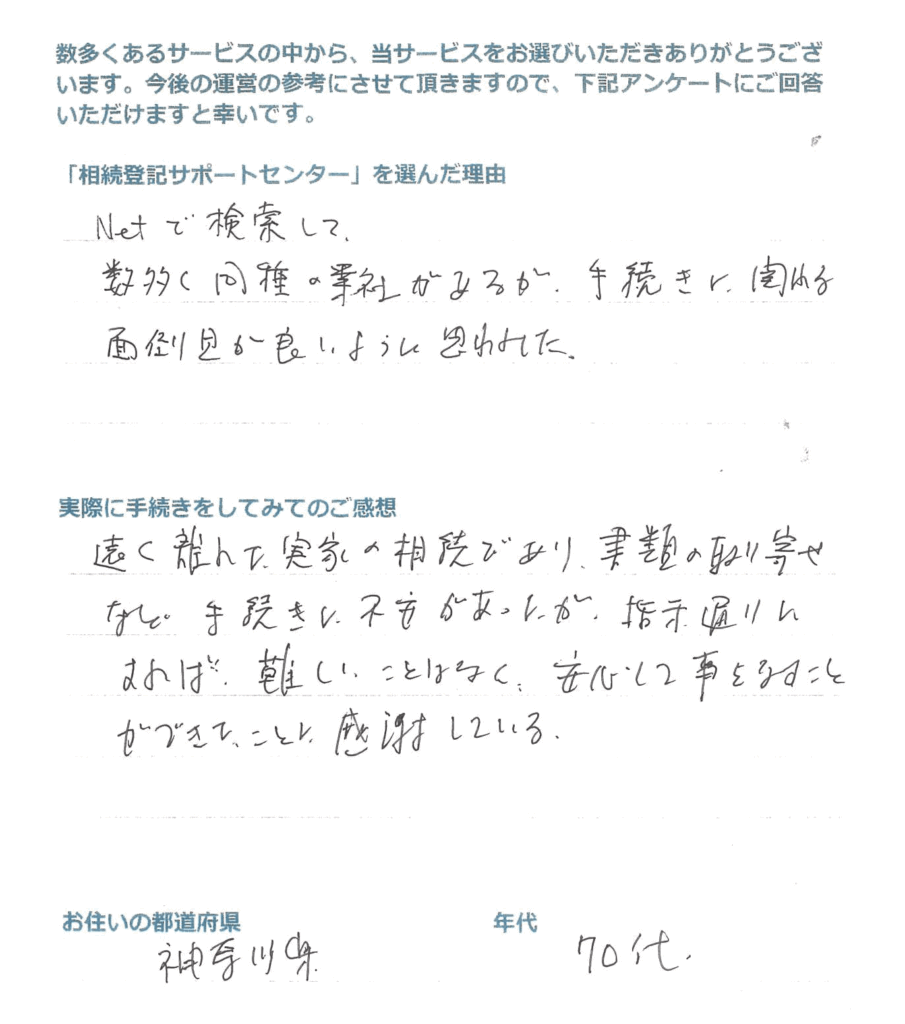 数多くあるサービスの中から、当サービスをお選びいただきありがとうござ
います。今後の運営の参考にさせて頂きますので、下記アンケートにご回答
いただけますと幸いです。
「相続登記サポートセンター」を選んだ理由
Netで検索して、
数多く同種の業社があるが、手続きに関わる
面倒見が良いように思われた。
実際に手続きをしてみてのご感想
遠く離れた実家の相続であり、書類の取り寄せ
など。手続きに不安があったが、指示通りに
すれば、難しいことはなく、安心して事をなすこと
ができた、ことに感謝している。
お住いの都道府県
年代
神奈川県
70代.